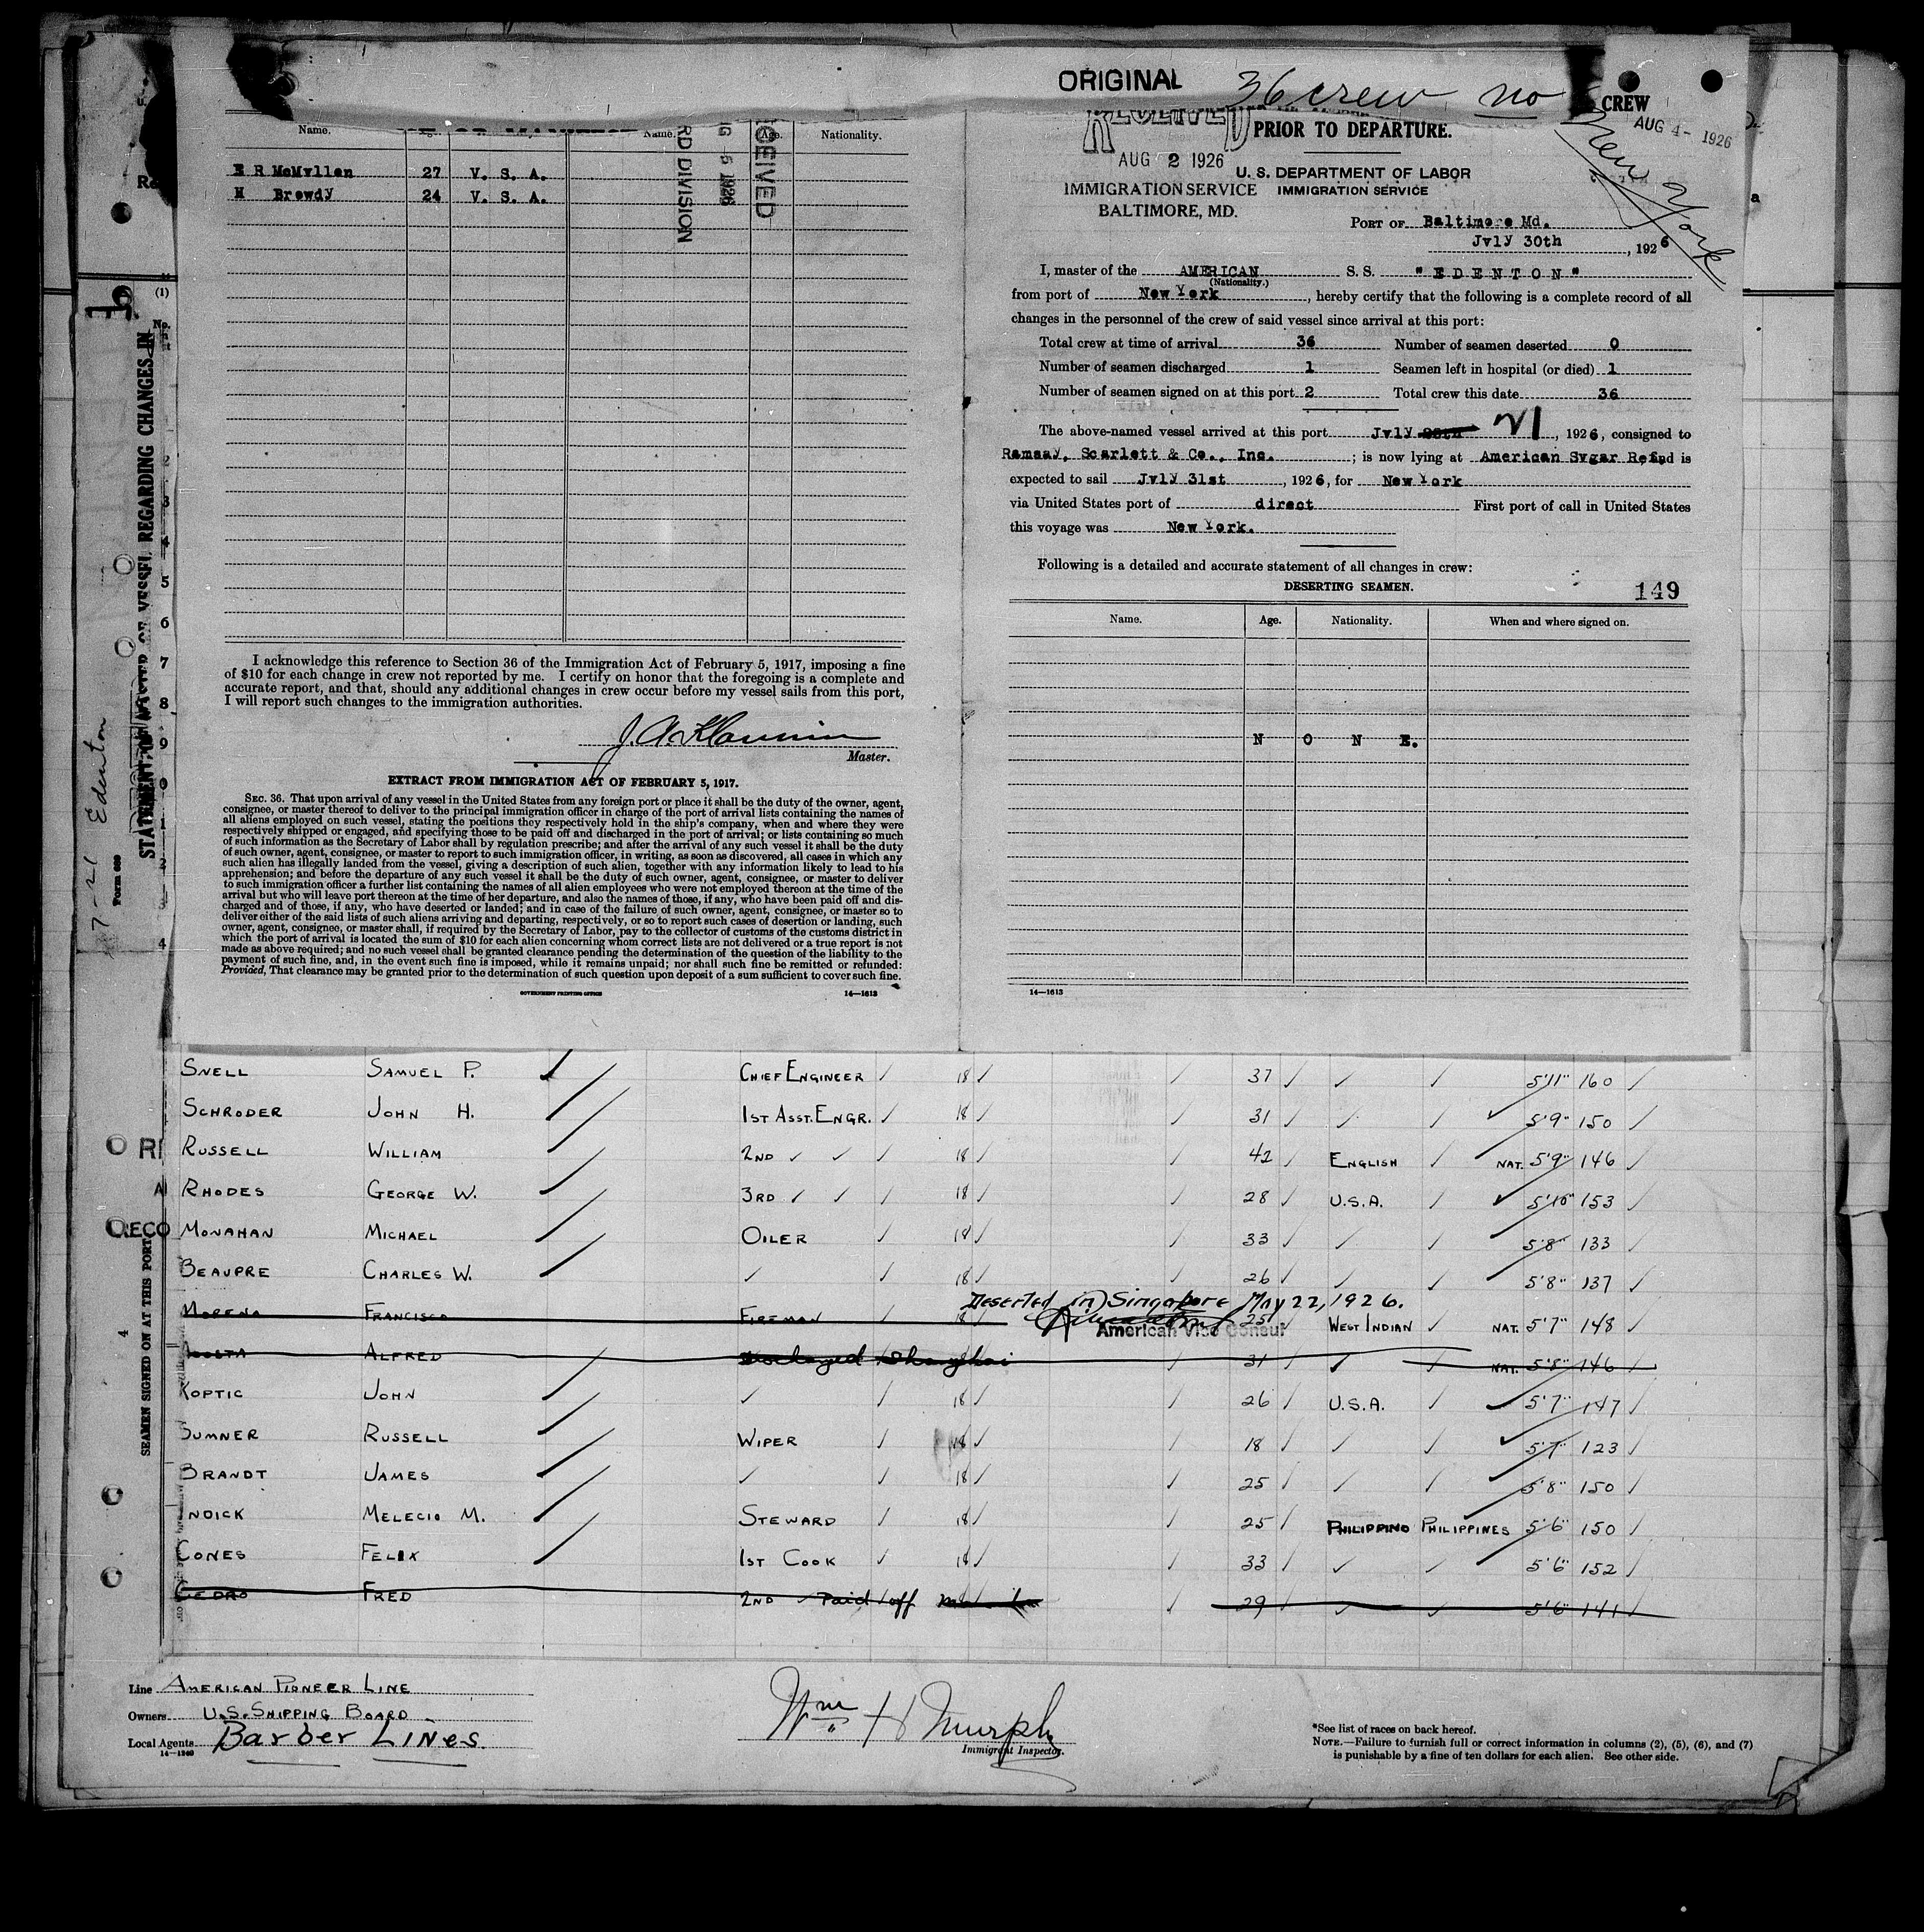 ORIGINAL 36 crew no
CREW
AUG 4 - 1926
New York
Name. Name. Age. Nationality.
E R McMyllen 27 V. S. A.
H Browdy 24 V. S. A.
RD DIVISION
5 1926
I acknowledge this reference to Section 36 of the Immigration Act of February 5, 1917, imposing a fine
of $10 for each change in crew not reported by me. I certify on honor that the foregoing is a complete and
accurate report, and that, should any additional changes in crew occur before my vessel sails from this port,
I will report such changes to the immigration authorities.
Master.
EXTRACT FROM IMMIGRATION ACT OF FEBRUARY 5, 1917.
SEC. 36. That upon arrival of any vessel in the United States from any foreign port or place it shall be the duty of the owner, agent,
consignee, or master thereof to deliver to the principal immigration officer in charge of the port of arrival lists containing the names of
all aliens employed on such vessel, stating the positions they respectively hold in the ship's company, when and where they were
respectively shipped or engaged, and specifying those to be paid off and discharged in the port of arrival; or lists containing so much
of such information as the Secretary of Labor shall by regulation prescribe; and after the arrival of any such vessel it shall be the duty
of such owner, agent, consignee, or master to report to such immigration officer, in writing, as soon as discovered, all cases in which any
such alien has illegally landed from the vessel, giving a description of such alien, together with any information likely to lead to his
apprehension; and before the departure of any such vessel it shall be the duty of such owner, agent, consignee, or master to deliver
to such immigration officer a further list containing the names of all alien employees who were not employed thereon at the time of the
arrival but who will leave port thereon at the time of her departure, and also the names of those, if any, who have been paid off and dis-
charged and of those, if any, who have deserted or landed; and in case of the failure of such owner, agent, consignee, or master so to
deliver either of the said lists of such aliens arriving and departing, respectively, or so to report such cases of desertion or landing, such
owner, agent, consignee, or master shall, if required by the Secretary of Labor, pay to the collector of customs of the customs district in
which the port of arrival is located the sum of $10 for each alien concerning whom correct lists are not delivered or a true report is not
made as above required; and no such vessel shall be granted clearance pending the determination of the question of the liability to the
payment of such fine, and, in the event such fine is imposed, while it remains unpaid; nor shall such fine be remitted or refunded:
Provided, That clearance may be granted prior to the determination of such question upon deposit of a sum sufficient to cover such fine.
GOVERNMENT PRINTING OFFICE 14—1613
RECEIVED
PRIOR TO DEPARTURE.
AUG 2 1926
U. S. DEPARTMENT OF LABOR
IMMIGRATION SERVICE IMMIGRATION SERVICE
BALTIMORE, MD.
PORT OF Baltimore Md.
Jvly 30th, 1926
I, master of the AMERICAN S. S. "EDENTON"
(Nationality.)
from port of New York, hereby certify that the following is a complete record of all
changes in the personnel of the crew of said vessel since arrival at this port:
Total crew at time of arrival 36 Number of seamen deserted 0
Number of seamen discharged 1 Seamen left in hospital (or died) 1
Number of seamen signed on at this port 2 Total crew this date 36
The above-named vessel arrived at this port Jvly 21, 1926, consigned to
Ramsay, Scarlett & Co., Inc. ; is now lying at American Svgar Ref. and is
expected to sail Jvly 31st, 1926, for New York
via United States port of direct First port of call in United States
this voyage was New York.
Following is a detailed and accurate statement of all changes in crew:
DESERTING SEAMEN. 149
Name. Age. Nationality. When and where signed on.
N O N E.
14—1613
STATEMENT OF MASTER OF VESSEL REGARDING CHANGES IN
7-21 Edenton
SEAMEN SIGNED ON AT THIS PORT
SNELL SAMUEL P. CHIEF ENGINEER 18 37 5'11" 160
SCHRODER JOHN H. 1ST ASST. ENGR. 18 31 5'9" 150
RUSSELL WILLIAM 2ND 18 42 ENGLISH NAT. 5'9" 146
RHODES GEORGE W. 3RD 18 28 U.S.A. 5'10" 153
MONAHAN MICHAEL OILER 18 33 5'8" 133
BEAUPRE CHARLES W. 18 26 5'8" 137
Deserted in Singapore May 22, 1926.
MORENO FRANCISCO FIREMAN 18 25 WEST INDIAN NAT. 5'7" 148
American Vice Consul
ALFRED Shanghai 31 NAT. 5'8" 146
KOPTIC JOHN 18 26 U.S.A. 5'7" 147
SUMNER RUSSELL WIPER 18 18 5'7" 123
BRANDT JAMES 18 25 5'8" 150
INDICK MELECIO M. STEWARD 18 25 PHILIPPINO PHILIPPINES 5'6" 150
CONES FELIX 1ST COOK 18 33 5'6" 152
FRED 2ND Paid off 29 5'6" 141
Line AMERICAN PIONEER LINE
Owners U.S. SHIPPING BOARD
Local Agents Barber Lines.
14—1240
Wm H Murphy
Immigrant Inspector.
*See list of races on back hereof.
NOTE.—Failure to furnish full or correct information in columns (2), (5), (6), and (7)
is punishable by a fine of ten dollars for each alien. See other side.